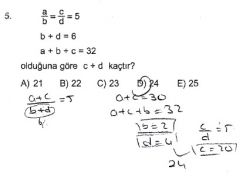 5. a/b = c/d = 5
b + d = 6
a + b + c = 32
olduğuna göre c + d kaçtır?
A) 21 B) 22 C) 23 D) 24 E) 25
(a+c)/(b+d) = 5
6
a+c=30
a+c+b=32
b=2
d=4
c/d = 5
c=20
24